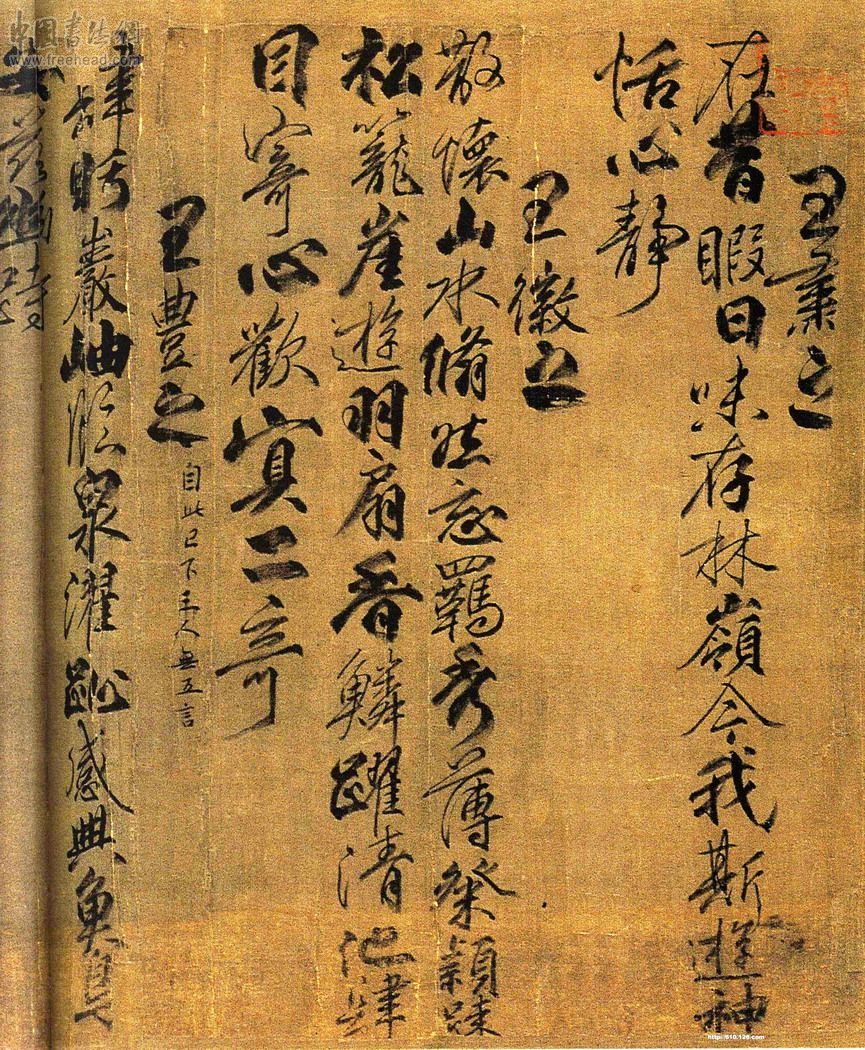 中国书法網
www.freehead.com
王肅之
在昔暇日味存林嶺今我斯遊神
恬心靜
王徽之
散懷山水翛然忘羈秀薄粲穎踈
松籠崖遊羽扇香鱗躍清池肆
目寄心歡寘二奇
王豐之 自此已下三人無五言
肆盻巖岫臨泉濯趾感興魚鳥
安茲幽峙
http://610.126.com